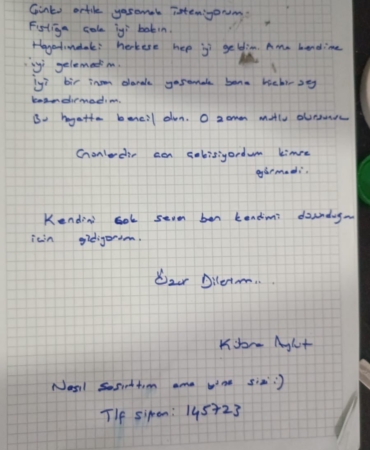 Çünkü artık yaşamak istemiyorum.
Fıstığa çok iyi bakın.
Hayatımdaki herkese hep iyi geldim. Ama kendime
iyi gelemedim.
İyi bir insan olarak yaşamak bana hiçbir şey
kazandırmadı.
Bu hayatta bencil olun. O zaman mutlu olursunuz
Günlerdir can çekişiyordum kimse
görmedi.
Kendini çok seven ben kendimi
için gidiyorum.
Özür Dilerim..
Kübra Aykut
Nasıl şaşırttım ama yine sizi :)
Tlf şifrem: 145723